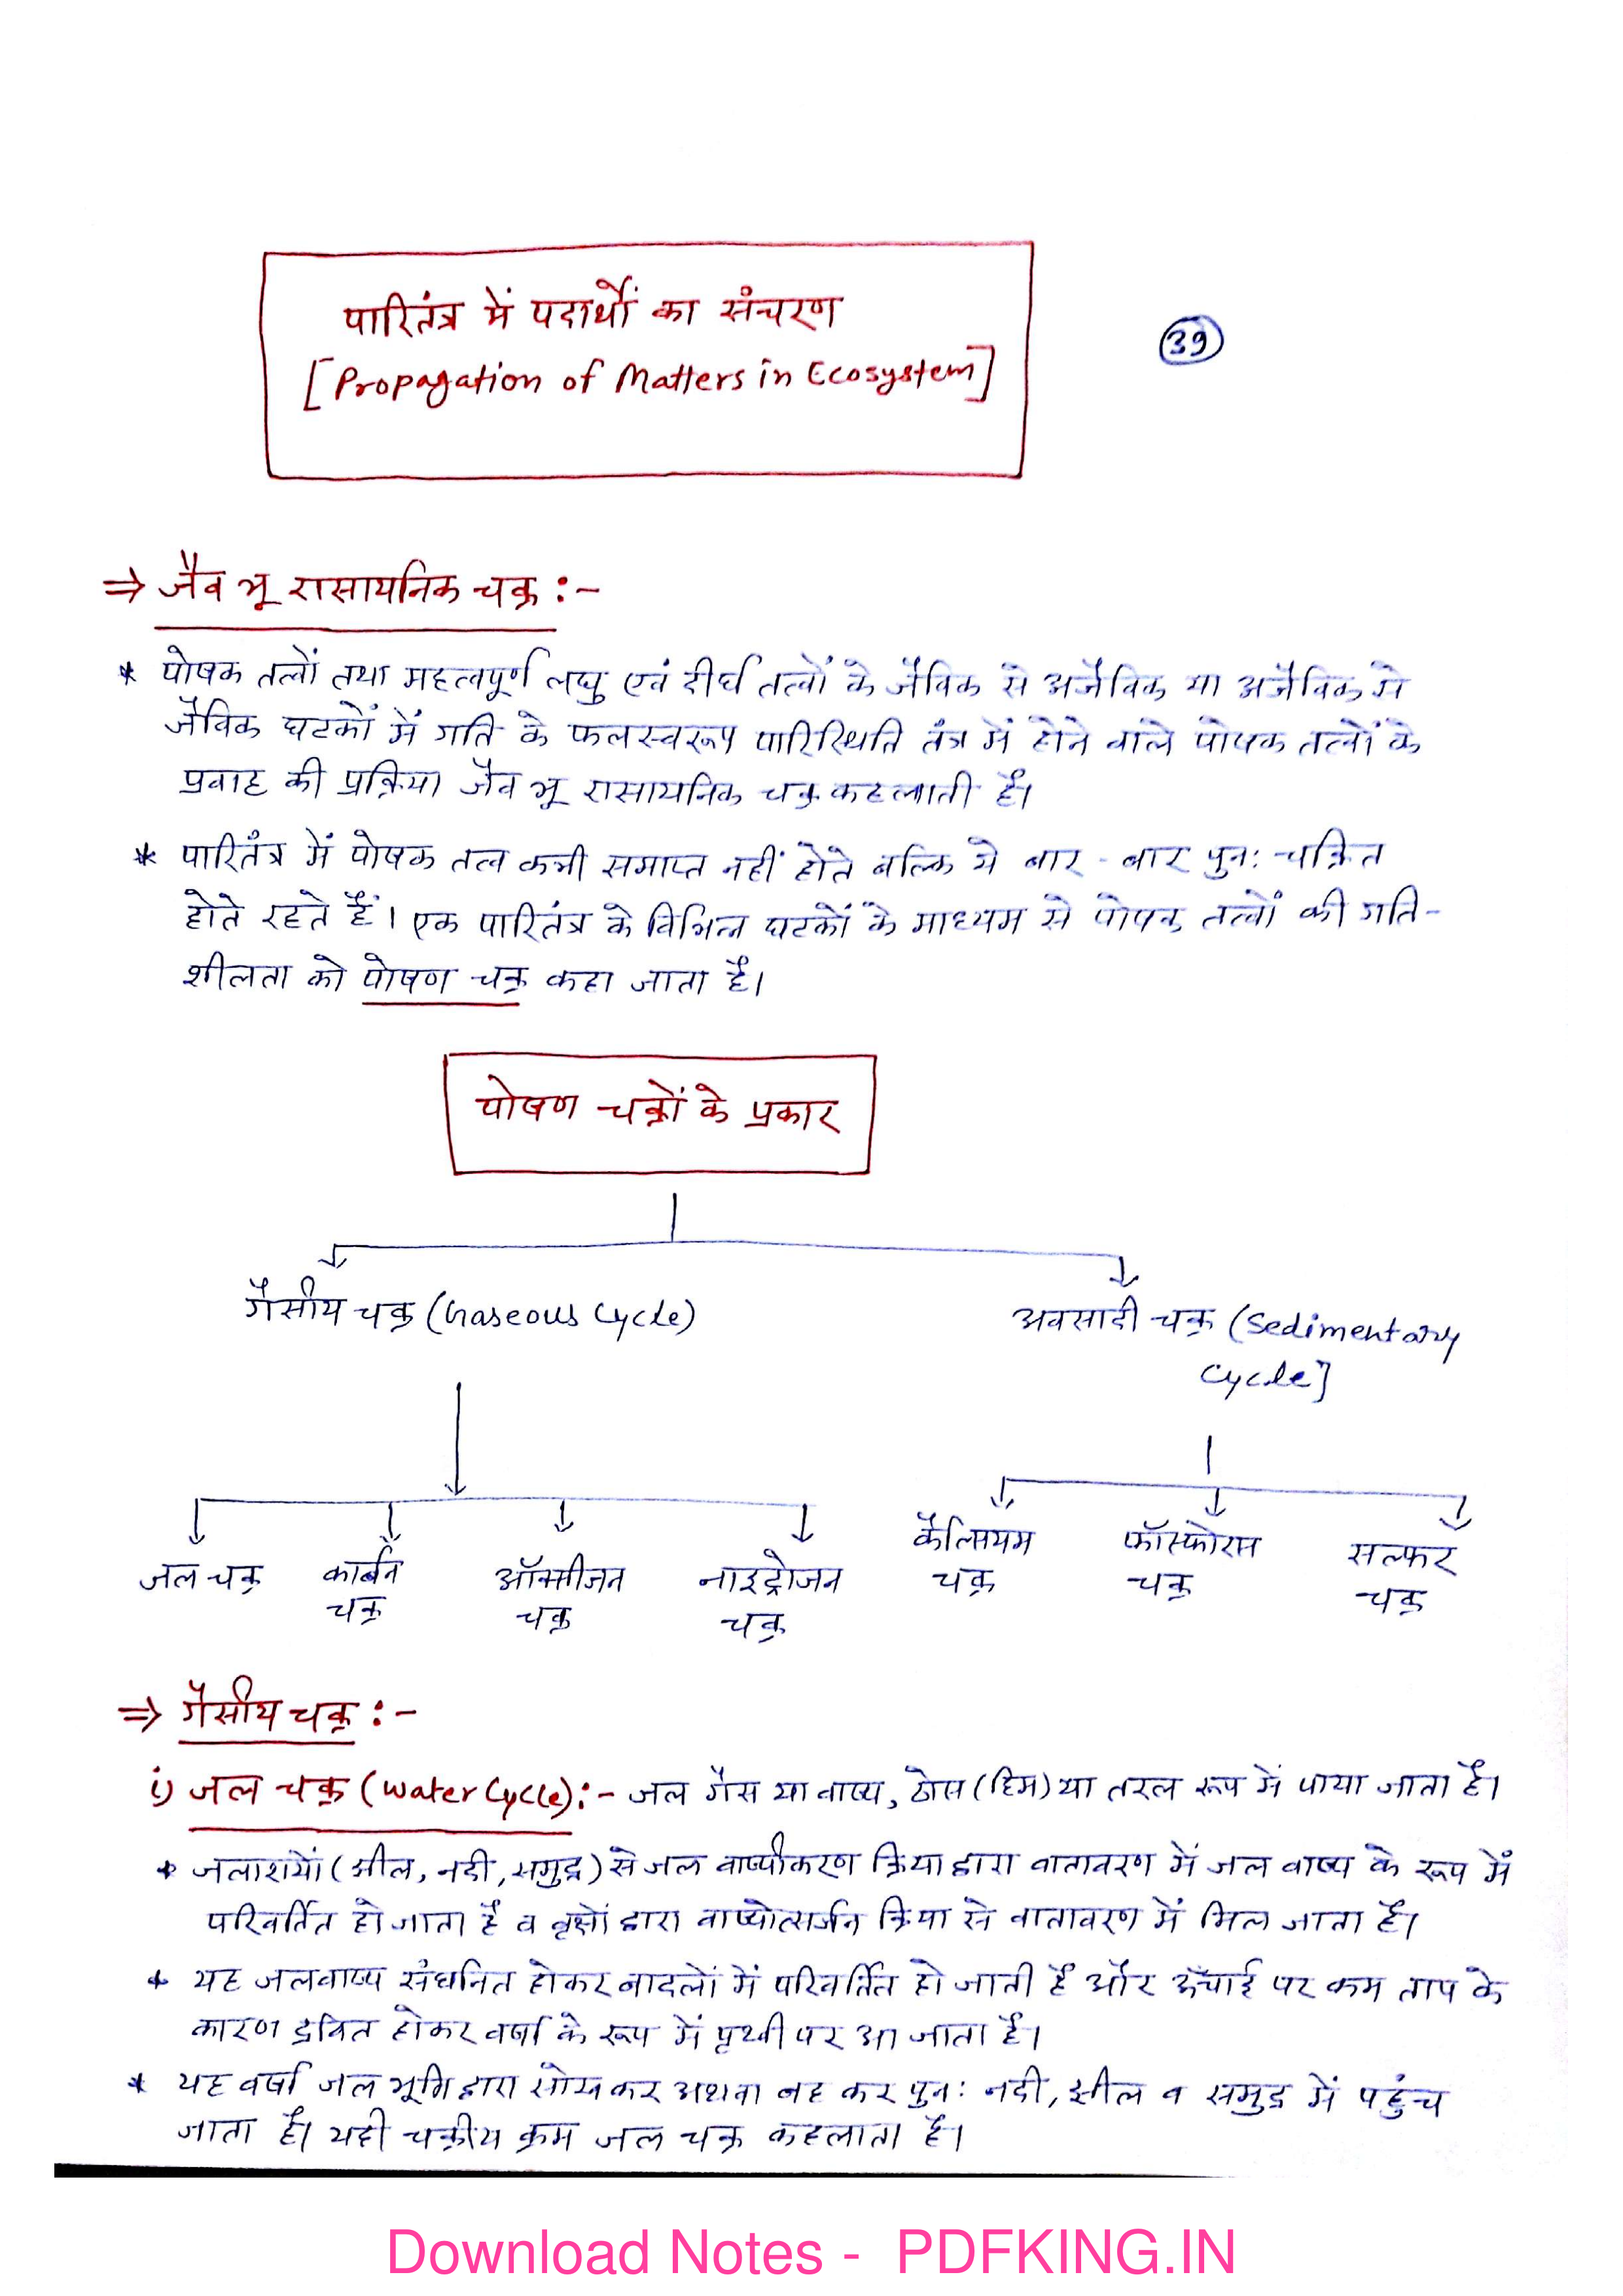 पारितंत्र में पदार्थों का संचरण
[Propagation of Matters in Ecosystem]
39
⇒ जैव भू रासायनिक चक्र :-
* पोषक तत्वों तथा महत्वपूर्ण लघु एवं दीर्घ तत्वों के जैविक से अजैविक या अजैविक से
जैविक घटकों में गति के फलस्वरूप पारिस्थिति तंत्र में होने वाले पोषक तत्वों के
प्रवाह की प्रक्रिया जैव भू रासायनिक चक्र कहलाती है।
* पारितंत्र में पोषक तत्व कभी समाप्त नहीं होते बल्कि ये बार - बार पुन: चक्रित
होते रहते हैं। एक पारितंत्र के विभिन्न घटकों के माध्यम से पोषक तत्वों की गति-
शीलता को पोषण चक्र कहा जाता है।
पोषण चक्रों के प्रकार
गैसीय चक्र (Gaseous Cycle)
अवसादी चक्र (Sedimentary
Cycle]
जल चक्र
कार्बन
चक्र
ऑक्सीजन
चक्र
नाइट्रोजन
चक्र
कैल्सियम
चक्र
फॉस्फोरस
चक्र
सल्फर
चक्र
⇒ गैसीय चक्र :-
i) जल चक्र (Water Cycle) :- जल गैस या वाष्प, ठोस (हिम) या तरल रूप में पाया जाता है।
* जलाशयों (झील, नदी, समुद्र) से जल वाष्पीकरण क्रिया द्वारा वातावरण में जल वाष्प के रूप में
परिवर्तित हो जाता है व वृक्षों द्वारा वाष्पोत्सर्जन क्रिया से वातावरण में मिल जाता है।
* यह जलवाष्प संघनित होकर बादलों में परिवर्तित हो जाती है और ऊँचाई पर कम ताप के
कारण द्रवित होकर वर्षा के रूप में पृथ्वी पर आ जाता है।
* यह वर्षा जल भूमि द्वारा सोख कर अथवा बह कर पुन: नदी, झील व समुद्र में पहुंच
जाता है। यही चक्रीय क्रम जल चक्र कहलाता है।
Download Notes - PDFKING.IN